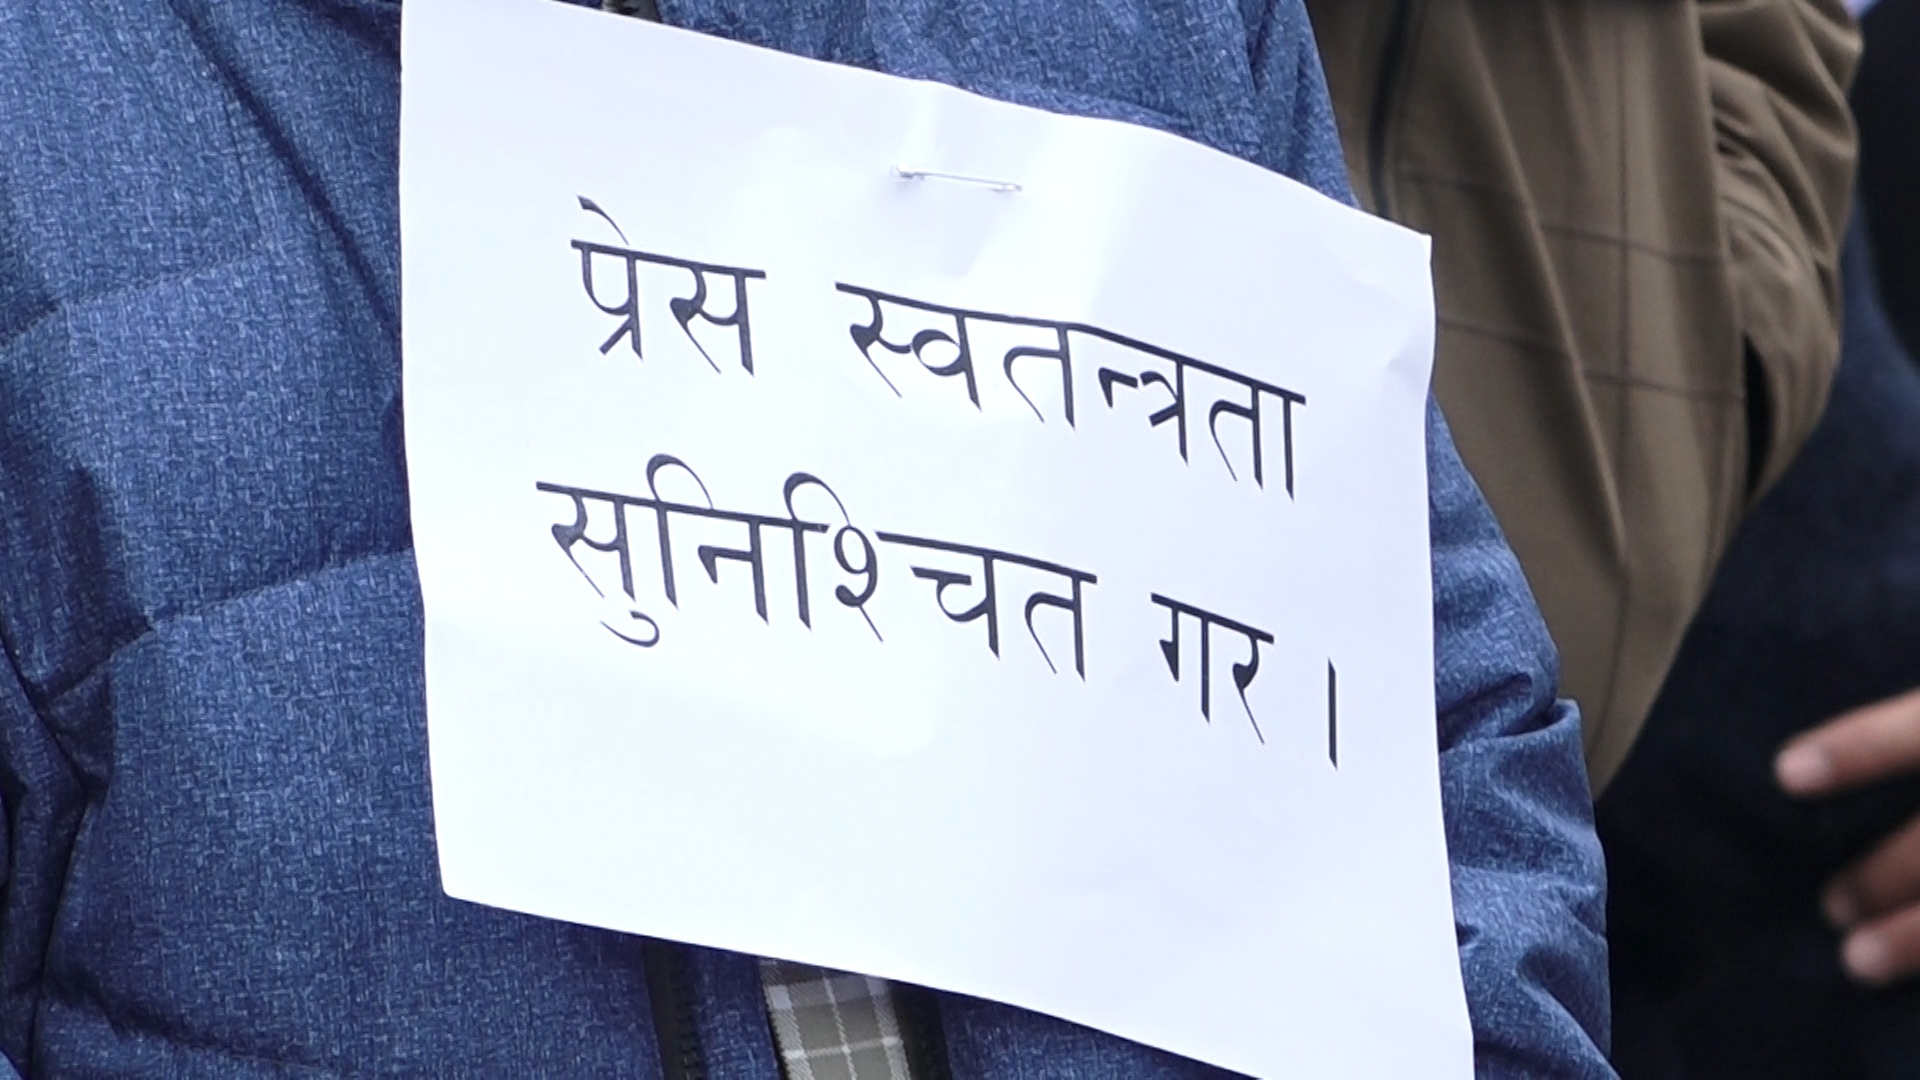 प्रेस स्वतन्त्रता
सुनिश्चित गर ।